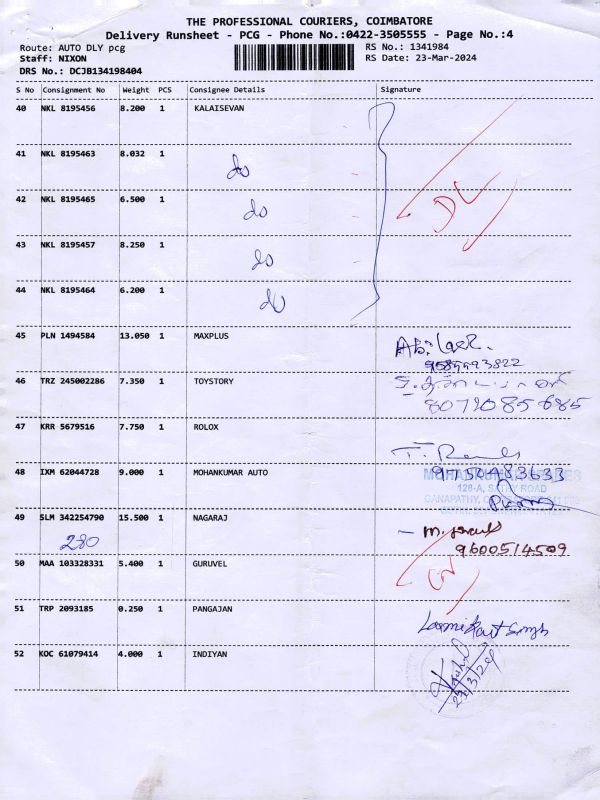 THE PROFESSIONAL COURIERS, COIMBATORE
Delivery Runsheet - PCG - Phone No.:0422-3505555 - Page No.:4
Route: AUTO DLY pcg RS No.: 1341984
Staff: NIXON RS Date: 23-Mar-2024
DRS No.: DCJB134198404
S No Consignment No Weight PCS Consignee Details Signature
40 NKL 8195456 8.200 1 KALAISEVAN
41 NKL 8195463 8.032 1 do
42 NKL 8195465 6.500 1 do
DL
43 NKL 8195457 8.250 1 do
44 NKL 8195464 6.200 1 do
45 PLN 1494584 13.050 1 MAXPLUS
46 TRZ 245002286 7.350 1 TOYSTORY
8072085685
47 KRR 5679516 7.750 1 ROLOX
48 IXM 62044728 9.000 1 MOHANKUMAR AUTO
128-A, SATHY ROAD
GANAPATHY,
49 SLM 342254790 15.500 1 NAGARAJ
280 9600514509
50 MAA 103328331 5.400 1 GURUVEL
51 TRP 2093185 0.250 1 PANGAJAN
52 KOC 61079414 4.000 1 INDIYAN